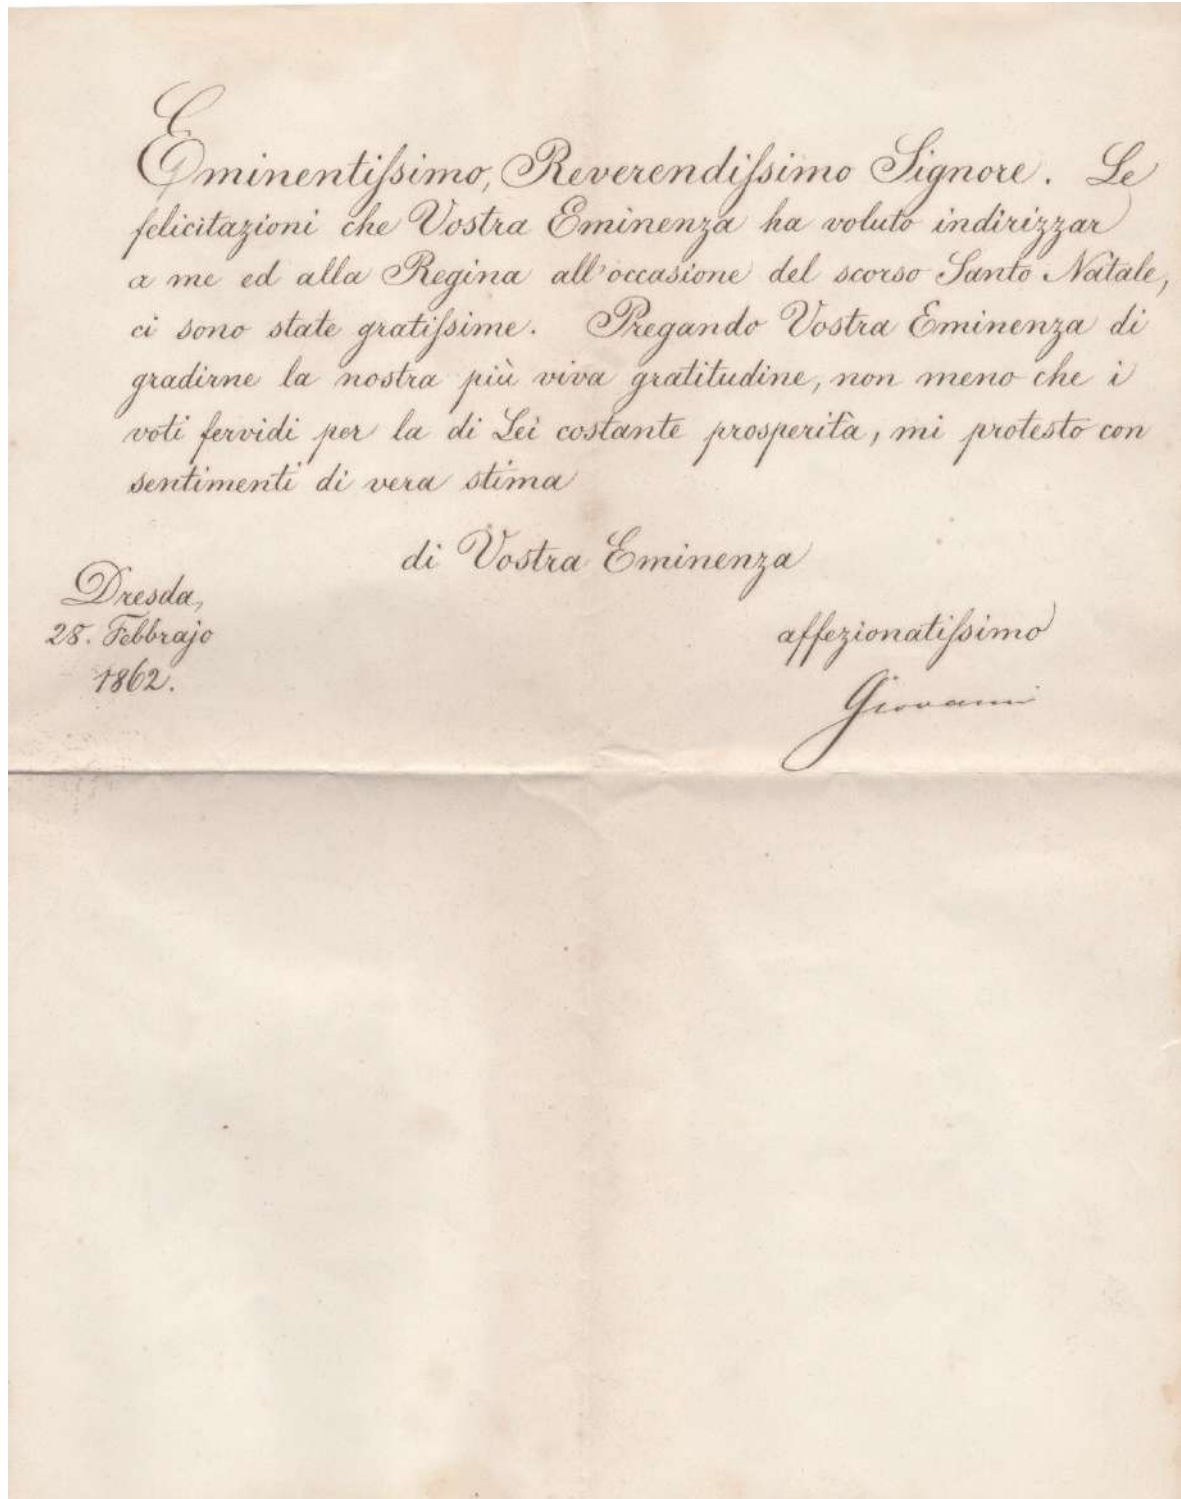 Eminentissimo, Reverendissimo Signore. Le
felicitazioni che Vostra Eminenza ha voluto indirizzar
a me ed alla Regina all'occasione del scorso Santo Natale,
ci sono state gratissime. Pregando Vostra Eminenza di
gradirne la nostra più viva gratitudine, non meno che i
voti fervidi per la di Lei costante prosperità, mi protesto con
sentimenti di vera stima
di Vostra Eminenza
Dresda,
28. Febbrajo
1862.
affezionatissimo
Giovanni